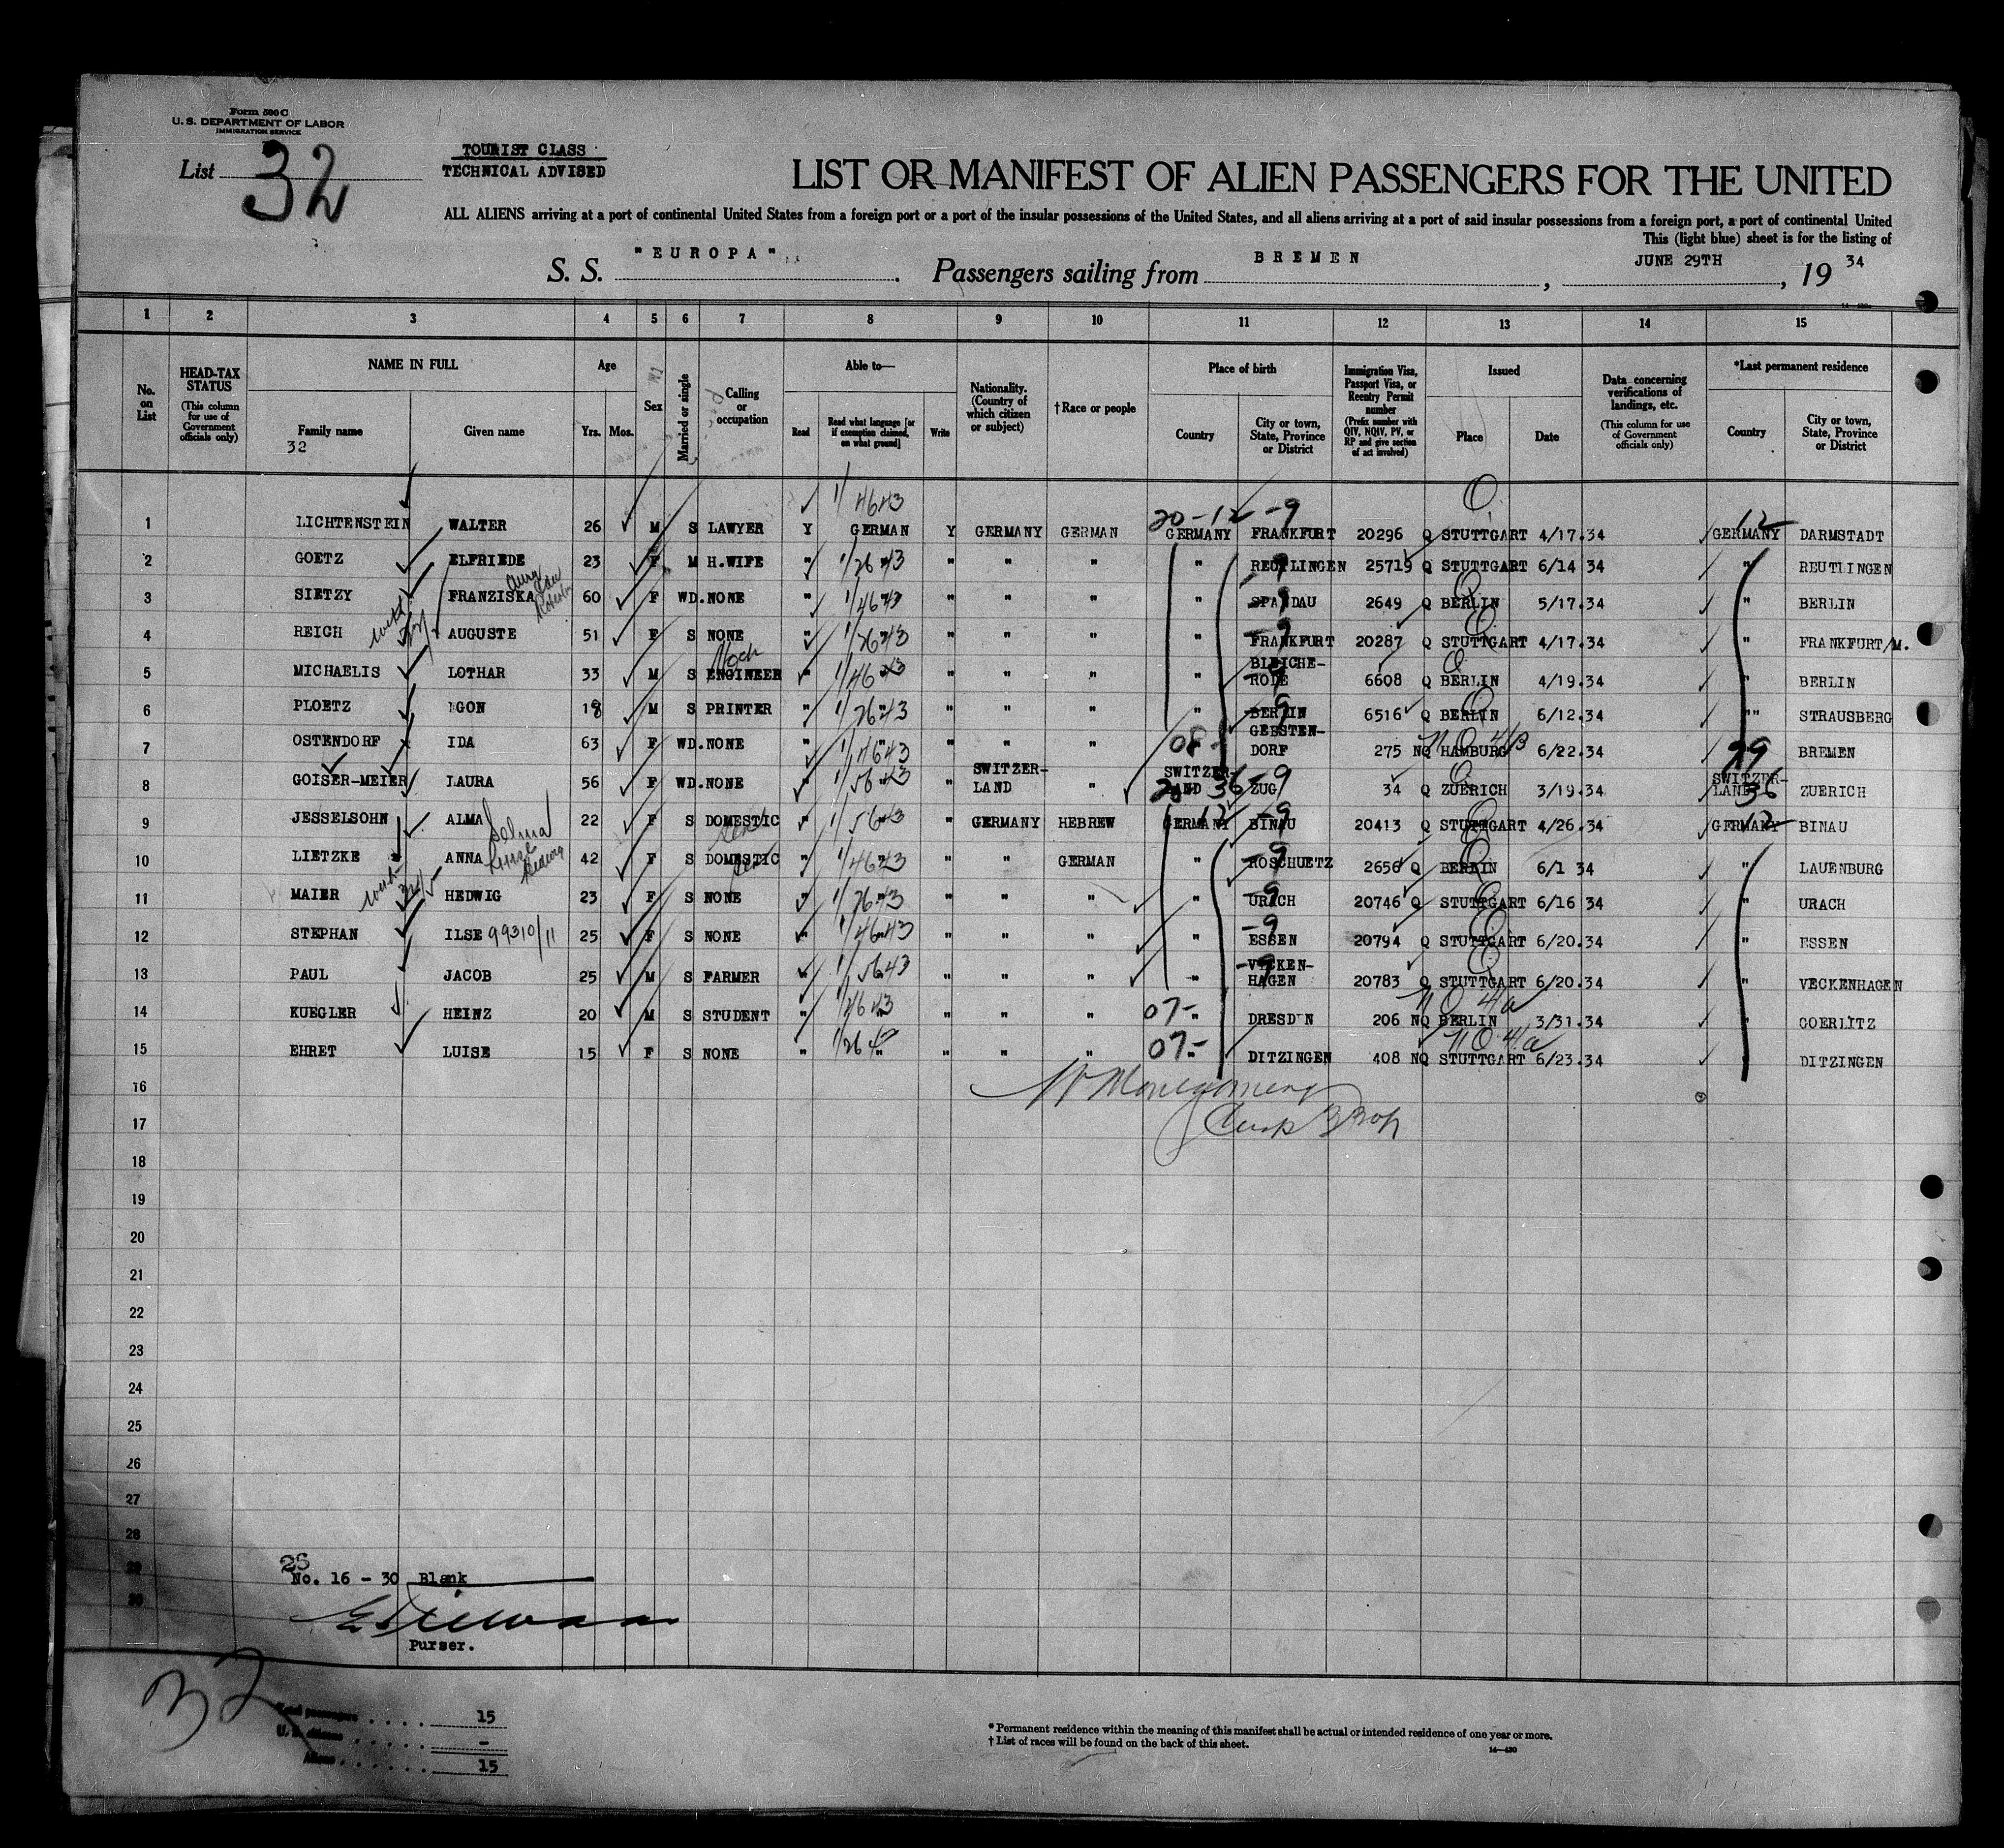 Form 500 C
U. S. DEPARTMENT OF LABOR
IMMIGRATION SERVICE
List 32
TOURIST CLASS
TECHNICAL ADVISED
LIST OR MANIFEST OF ALIEN PASSENGERS FOR THE UNITED
ALL ALIENS arriving at a port of continental United States from a foreign port or a port of the insular possessions of the United States, and all aliens arriving at a port of said insular possessions from a foreign port, a port of continental United
This (light blue) sheet is for the listing of
S. S. "EUROPA" . Passengers sailing from BREMEN , JUNE 29TH , 19 34
1 2 3 4 5 6 7 8 9 10 11 12 13 14 15
No. on List
HEAD-TAX STATUS (This column for use of Government officials only)
NAME IN FULL
Family name Given name
32
Age
Yrs. Mos.
Sex
Married or single
Calling or occupation
Able to—
Read Read what language [or if exemption claimed, on what ground] Write
Nationality. (Country of which citizen or subject)
†Race or people
Place of birth
Country City or town, State, Province or District
Immigration Visa, Passport Visa, or Reentry Permit number (Prefix number with QIV, NQIV, PV, or RP and give section of act involved)
Issued
Place Date
Data concerning verifications of landings, etc. (This column for use of Government officials only)
*Last permanent residence
Country City or town, State, Province or District
1 LICHTENSTEIN WALTER 26 M S LAWYER Y GERMAN Y GERMANY GERMAN GERMANY FRANKFURT 20296 Q STUTTGART 4/17.34 GERMANY DARMSTADT
2 GOETZ ELFRIEDE 23 F M H.WIFE " " " " " " REUTLINGEN 25719 Q STUTTGART 6/14 34 " REUTLINGEN
3 SIETZY FRANZISKA 60 F WD. NONE " " " " " " SPANDAU 2649 Q BERLIN 5/17.34 " BERLIN
4 REICH AUGUSTE 51 F S NONE " " " " " " FRANKFURT 20287 Q STUTTGART 4/17.34 " FRANKFURT/M.
5 MICHAELIS LOTHAR 33 M S ENGINEER " " " " " " BLEICHE-RODE 6608 Q BERLIN 4/19.34 " BERLIN
6 PLOETZ EGON 18 M S PRINTER " " " " " " BERLIN 6516 Q BERLIN 6/12.34 "" STRAUSBERG
7 OSTENDORF IDA 63 F WD. NONE " " " " " " GEESTEN-DORF 275 NQ HAMBURG 6/22.34 BREMEN
8 GOISER-MEIER LAURA 56 F WD. NONE " " " SWITZER-LAND " SWITZER-LAND ZUG 34 Q ZUERICH 3/19.34 SWITZER-LAND ZUERICH
9 JESSELSOHN ALMA 22 F S DOMESTIC " " " GERMANY HEBREW GERMANY BINAU 20413 Q STUTTGART 4/26.34 GERMANY BINAU
10 LIETZKE ANNA 42 F S DOMESTIC " " " " GERMAN " ROSCHUETZ 2656 Q BERLIN 6/1 34 " LAUENBURG
11 MAIER HEDWIG 23 F S NONE " " " " " " URACH 20746 Q STUTTGART 6/16 34 " URACH
12 STEPHAN ILSE 99310/11 25 F S NONE " " " " " " ESSEN 20794 Q STUTTGART 6/20.34 " ESSEN
13 PAUL JACOB 25 M S FARMER " " " " " " VECKEN-HAGEN 20783 Q STUTTGART 6/20.34 " VECKENHAGEN
14 KUEGLER HEINZ 20 M S STUDENT " " " " " 07- " DRESD N 206 NQ BERLIN 3/31.34 " GOERLITZ
15 EHRET LUISE 15 F S NONE " " " " " 07- " DITZINGEN 408 NQ STUTTGART 6/23.34 " DITZINGEN
16
W Montgomery
17
18
19
20
21
22
23
24
25
26
27
28
29
30
No. 16 - 30 Blank
Purser.
32
Total passengers 15
U. S. citizens -
Aliens 15
* Permanent residence within the meaning of this manifest shall be actual or intended residence of one year or more.
† List of races will be found on the back of this sheet.
14—430